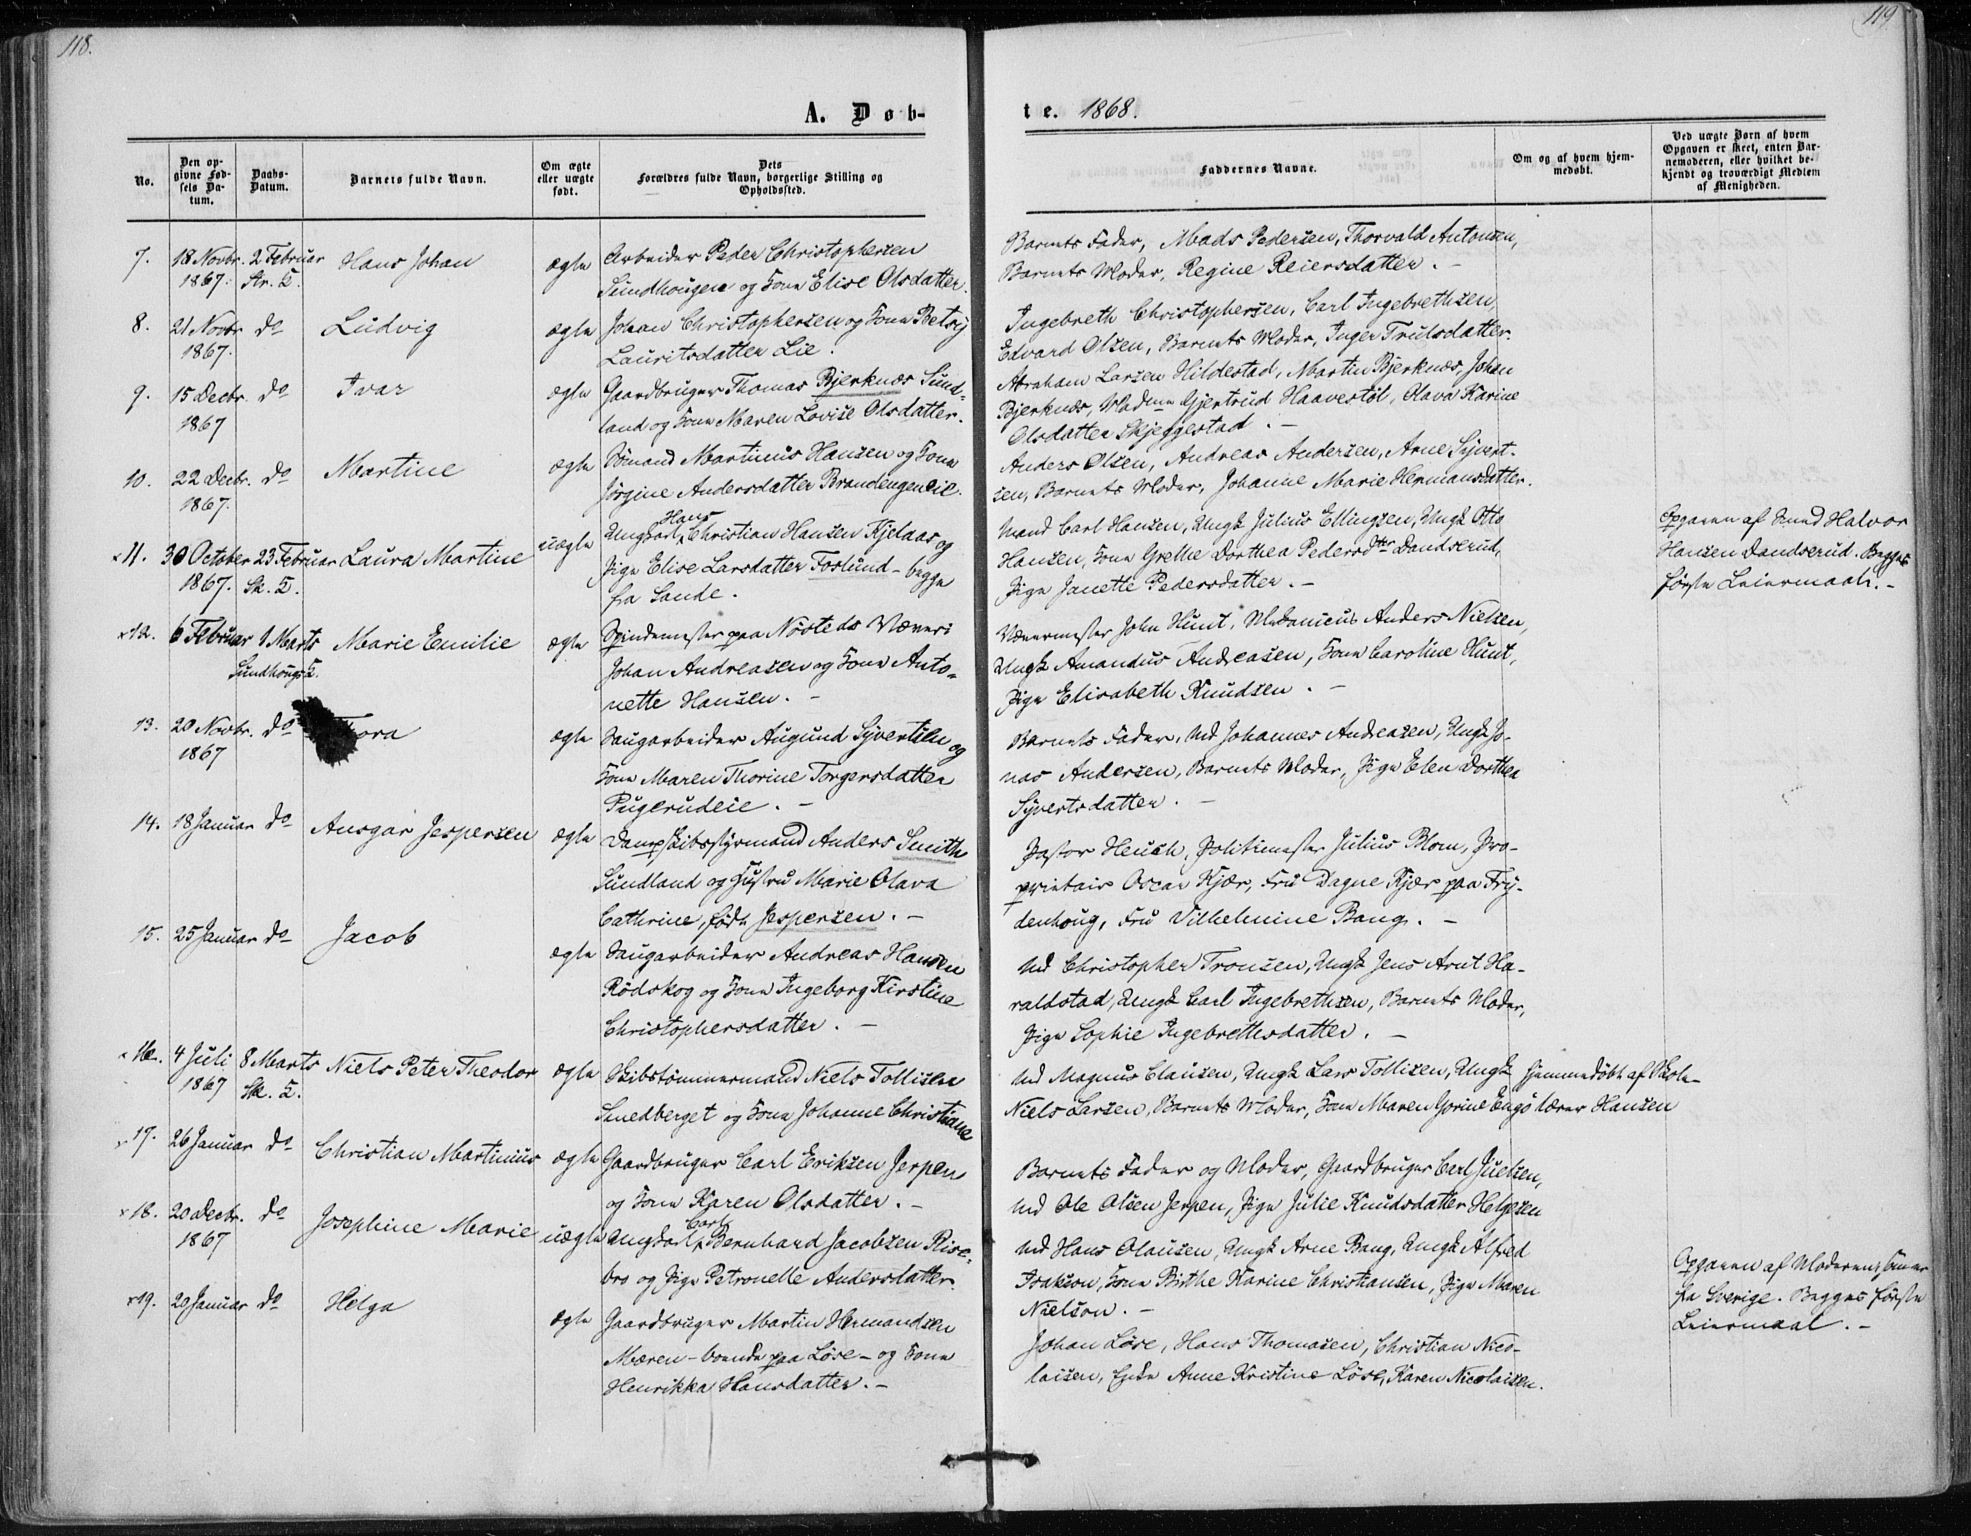 118.
119
A. Døb-
te. 1868.
No.
Den op-
givne Fød-
sels Da-
tum.
Daabs-
Datum.
Barnets fulde Navn.
Om ægte
eller uægte
født.
Dets
Forældres fulde Navn, borgerlige Stilling og
Opholdssted.
Faddernes Navne.
Om og af hvem hjem-
medøbt.
Ved uægte Børn af hvem
Opgaven er skeet, enten Bar-
nemoderen, eller hvilket be-
kjendt og troværdigt Medlem
af Menigheden.
7. 18 Novbr. 2 Februar Hans Johan ægte Arbeider Peder Christophersen
1867. Str. K. Sundhougen og Kone Elise Olsdatter.
Barnets Fader, Mads Pedersen, Thorvald Antonsen,
Barnets Moder, Regine Reiersdatter. -
8. 21 Novbr do Ludvig ægte Johan Christophersen og Kone Betsy
1867. Lauritsdatter Lie.
Ingebreth Christophersen, Carl Ingebrethsen,
Edvard Olsen, Barnets Moder, Inger Trulsdatter.
9. 15 Decbr. do Ivar ægte Gaardbruger Thomas Bjerknæs Sund-
1867 land og Kone Maren Lovise Olsdatter.
Abraham Larsen Hildestad, Martin Bjerknæs, Johan
Bjerknæs, Madme Gjertrud Haavestøl, Olava Karine
Olsdatter Skjeggestad. -
10. 22 Decbr. do Martine ægte Sømand Martinius Hansen og Kone
1867. Jørgine Andersdatter Brandengen eie.
Anders Olsen, Andreas Andersen, Arne Syvert-
sen, Barnets Moder, Johanne Marie Hermansdatter.
x11. 30 October 23 Februar Laura Martine uægte Ungkarl Hans Christian Hansen Kjelaas og
1867. Sk. K. Pige Elise Larsdatter Foslund - begge
fra Sande.
Mand Carl Hansen, Ungk Julius Ellingsen, Ungk Otto
Hansen, Kone Grethe Dorthea Pedersdtr Dandserud,
Pige Janette Pedersdatter. -
Opgaven af Smed Halvor
Hansen Dandserud. Begges
første Leiermaal. -
x12. 6 Februar 1 Marts Marie Emilie ægte Spindemester paa Nøsteds Væveri
Sundhougs K. Johan Andreasen og Kone Anto-
nette Hansen. -
Vævermester John Hunt, Mechanicus Anders Nielsen,
Ungk Amandus Andreasen, Kone Caroline Hunt,
Pige Elisabeth Knudsen. -
13. 20 Novbr. do Thora ægte Saugarbeider Augund Syvertsen og
1867 Kone Maren Thorine Torgersdatter
Pugerudeie. -
Barnets Fader, Md Johannes Andreasen, Ungk Jo-
nas Andersen, Barnets Moder, Pige Elen Dorthea
Syvertsdatter. -
14. 18 Januar do Ansgar Jespersen ægte Dampskibsstyrmand Anders Smith
Sundland og Hustru Marie Olava
Cathrine, født Jespersen. -
Pastor Heuch, Politimester Julius Blom, Pro-
prietair Oscar Kjær, Fru Dagne Kjær paa Fry-
denhoug, Fru Vilhelmine Bang. -
15. 25 Januar do Jacob ægte Saugarbeider Andreas Hansen
Rødskog og Kone Ingeborg Kirstine
Christophersdatter. -
Md Christopher Tronsen, Ungk Jens Arnt Ha-
raldstad, Ungk Carl Ingebrethsen, Barnets Moder,
Pige Sophie Ingebrethsdatter. -
x16. 4 Juli 8 Marts Niels Peter Theodor ægte Skibstømmermand Niels Tollisen
1867 Sk. K. Smedberget og Kone Johanne Christiane
Md Magnus Clausen, Ungk Lars Tollisen, Ungk
Niels Larsen, Barnets Moder, Kone Maren Gorine Engø
Hjemmedøbt af Skole-
lærer Hansen
x17. 26 Januar do Christian Martinius ægte Gaardbruger Carl Eriksen Jerpen
og Kone Karen Olsdatter. -
Barnets Fader og Moder, Gaardbruger Carl Juelsen,
Md Ole Olsen Jerpen, Pige Julie Knudsdatter Helgesen
x18. 20 Decbr. do Josephine Marie uægte Ungkarl Carl Bernhard Jacobsen Rise-
1867 bro og Pige Petronelle Andersdatter.
Md Hans Olausen, Ungk Arne Bang, Ungk Alfred
Isakson, Kone Birthe Karine Christiansen, Pige Maren
Nielson. -
Opgaven af Moderen, som er
fra Sverige. Begges første
Leiermaal. -
x19. 20 Januar do Helga ægte Gaardbruger Martin Hermandsen
Mæren - boende paa Løse - og Kone
Henrikka Hansdatter. -
Johan Løse, Hans Thomasen, Christian Nico-
laisen, Enke Anne Kristine Løse, Karen Nicolaisen.